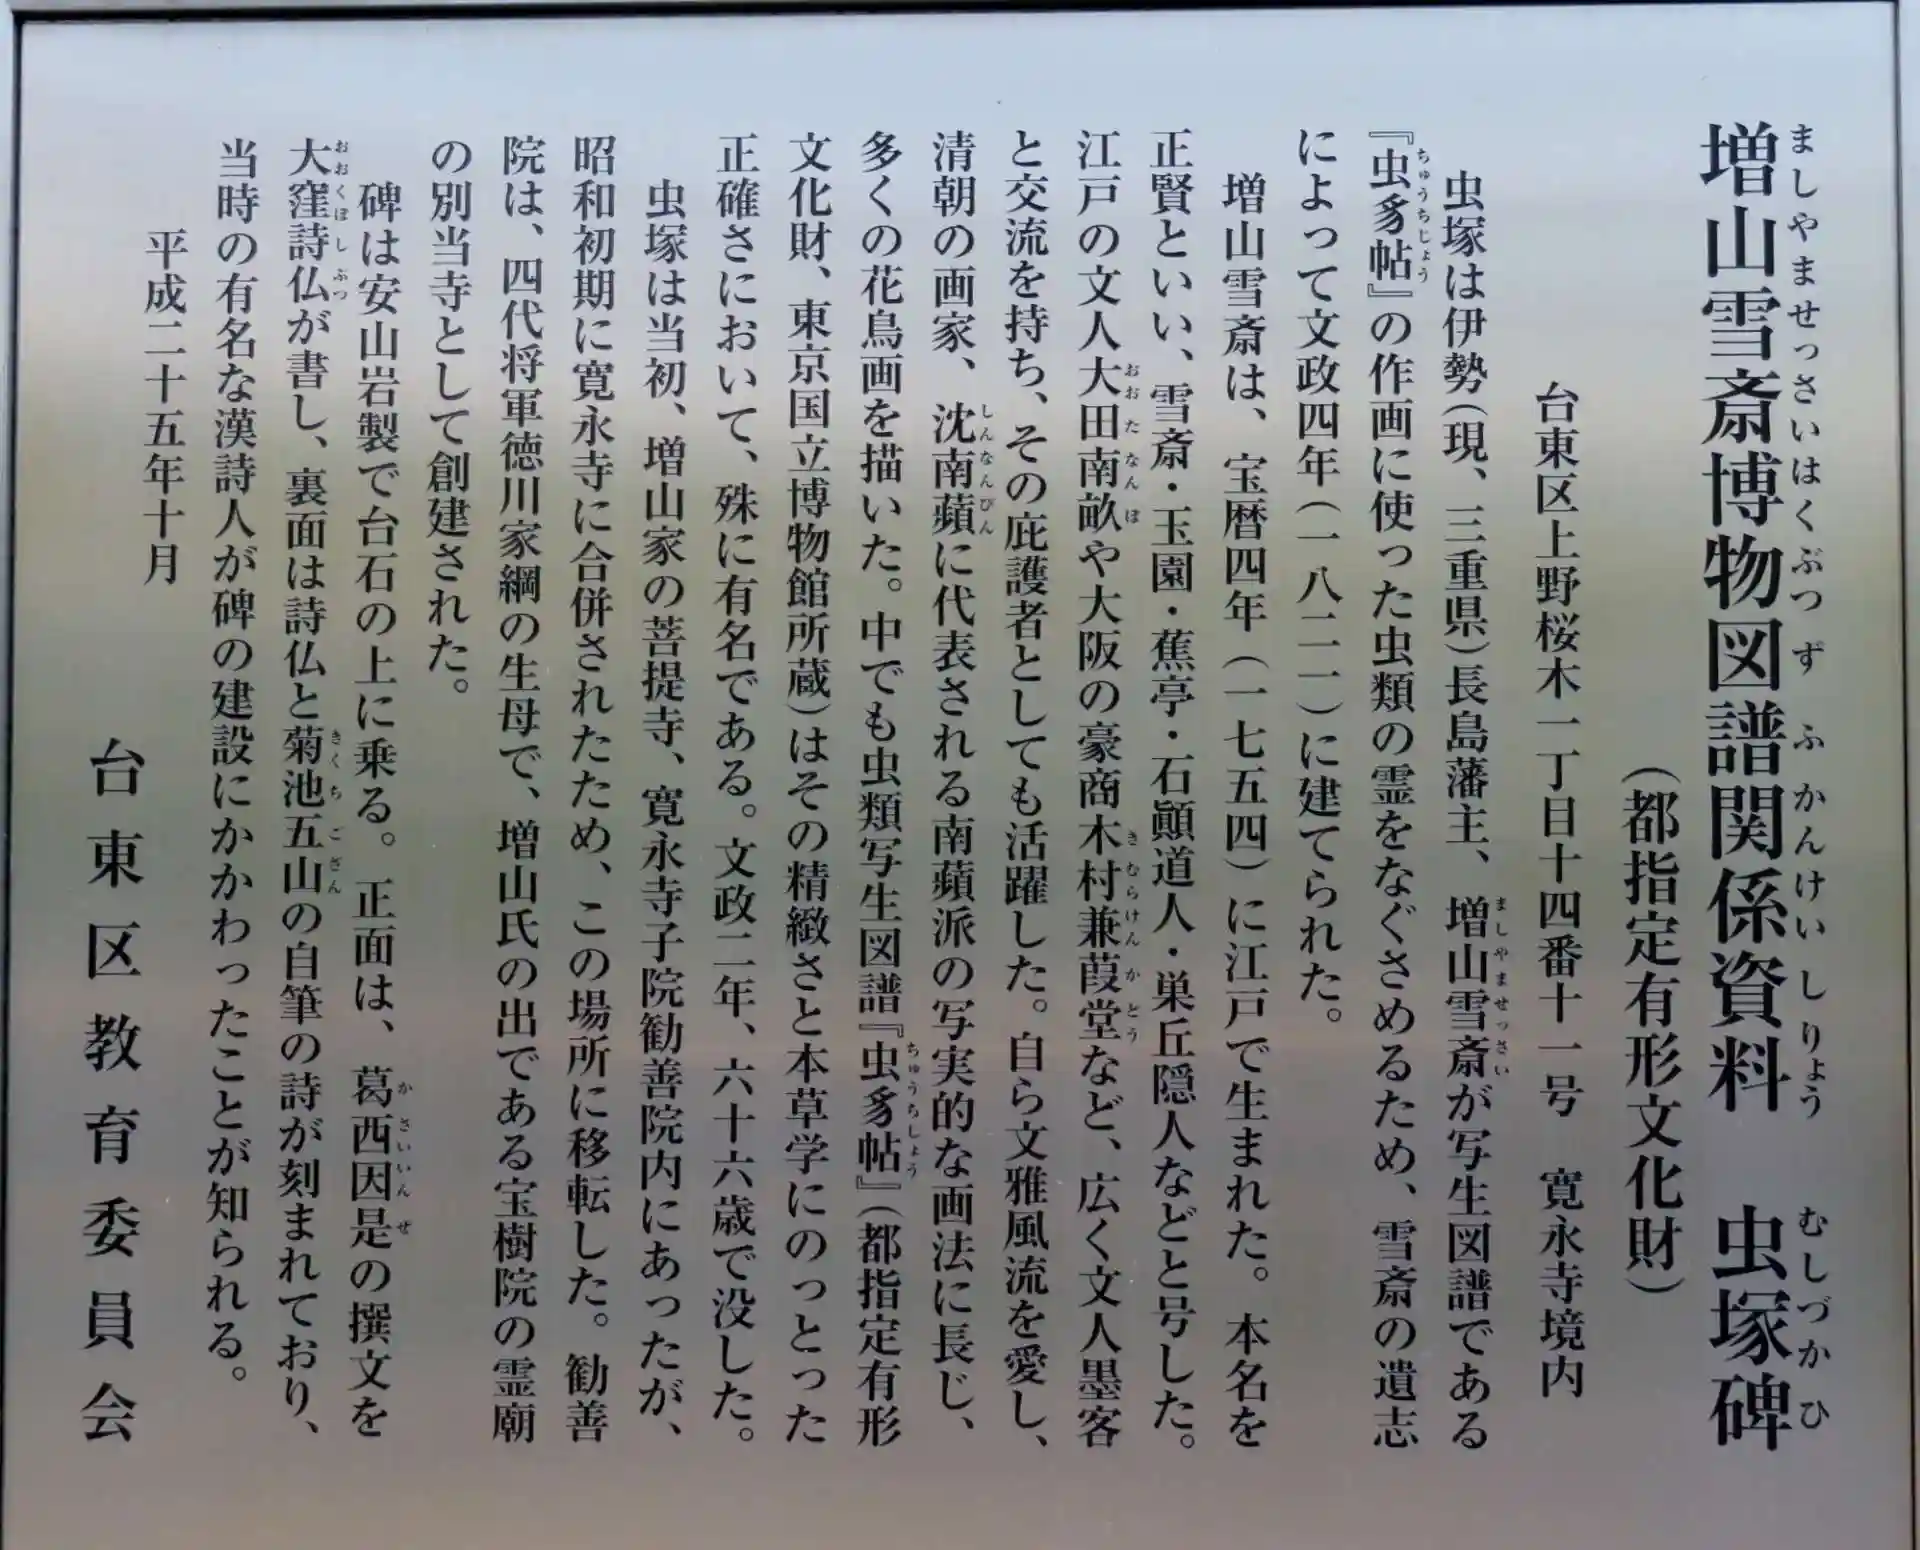 増山雪斎博物図譜関係資料　虫塚碑
ましやませっさいはくぶつずふかんけいしりょう　むしづかひ
（都指定有形文化財）
台東区上野桜木一丁目十四番十一号　寛永寺境内
虫塚は伊勢（現、三重県）長島藩主、増山雪斎が写生図譜である
ましやませっさい
『虫豸帖』の作画に使った虫類の霊をなぐさめるため、雪斎の遺志
ちゅうちじょう
によって文政四年（一八二一）に建てられた。
増山雪斎は、宝暦四年（一七五四）に江戸で生まれた。本名を
正賢といい、雪斎・玉園・蕉亭・石顚道人・巣丘隠人などと号した。
江戸の文人大田南畝や大阪の豪商木村兼葭堂など、広く文人墨客
おおたなんぽ　きむらけんかどう
と交流を持ち、その庇護者としても活躍した。自ら文雅風流を愛し、
清朝の画家、沈南蘋に代表される南蘋派の写実的な画法に長じ、
しんなんぴん
多くの花鳥画を描いた。中でも虫類写生図譜『虫豸帖』（都指定有形
ちゅうちじょう
文化財、東京国立博物館所蔵）はその精緻さと本草学にのっとった
正確さにおいて、殊に有名である。文政二年、六十六歳で没した。
虫塚は当初、増山家の菩提寺、寛永寺子院勧善院内にあったが、
昭和初期に寛永寺に合併されたため、この場所に移転した。勧善
院は、四代将軍徳川家綱の生母で、増山氏の出である宝樹院の霊廟
の別当寺として創建された。
碑は安山岩製で台石の上に乗る。正面は、葛西因是の撰文を
かさいいんぜ
大窪詩仏が書し、裏面は詩仏と菊池五山の自筆の詩が刻まれており、
おおくぼしぶつ　きくちござん
当時の有名な漢詩人が碑の建設にかかわったことが知られる。
平成二十五年十月
台東区教育委員会